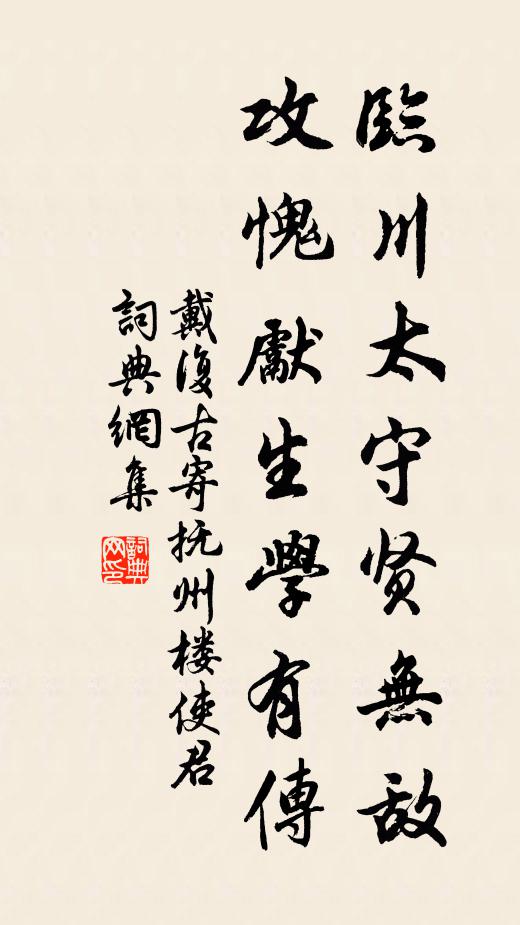 臨川太守贤無敌
攻愧獻生學有傳
戴復古寄抚州楼使君
詞典網集
詞典网印